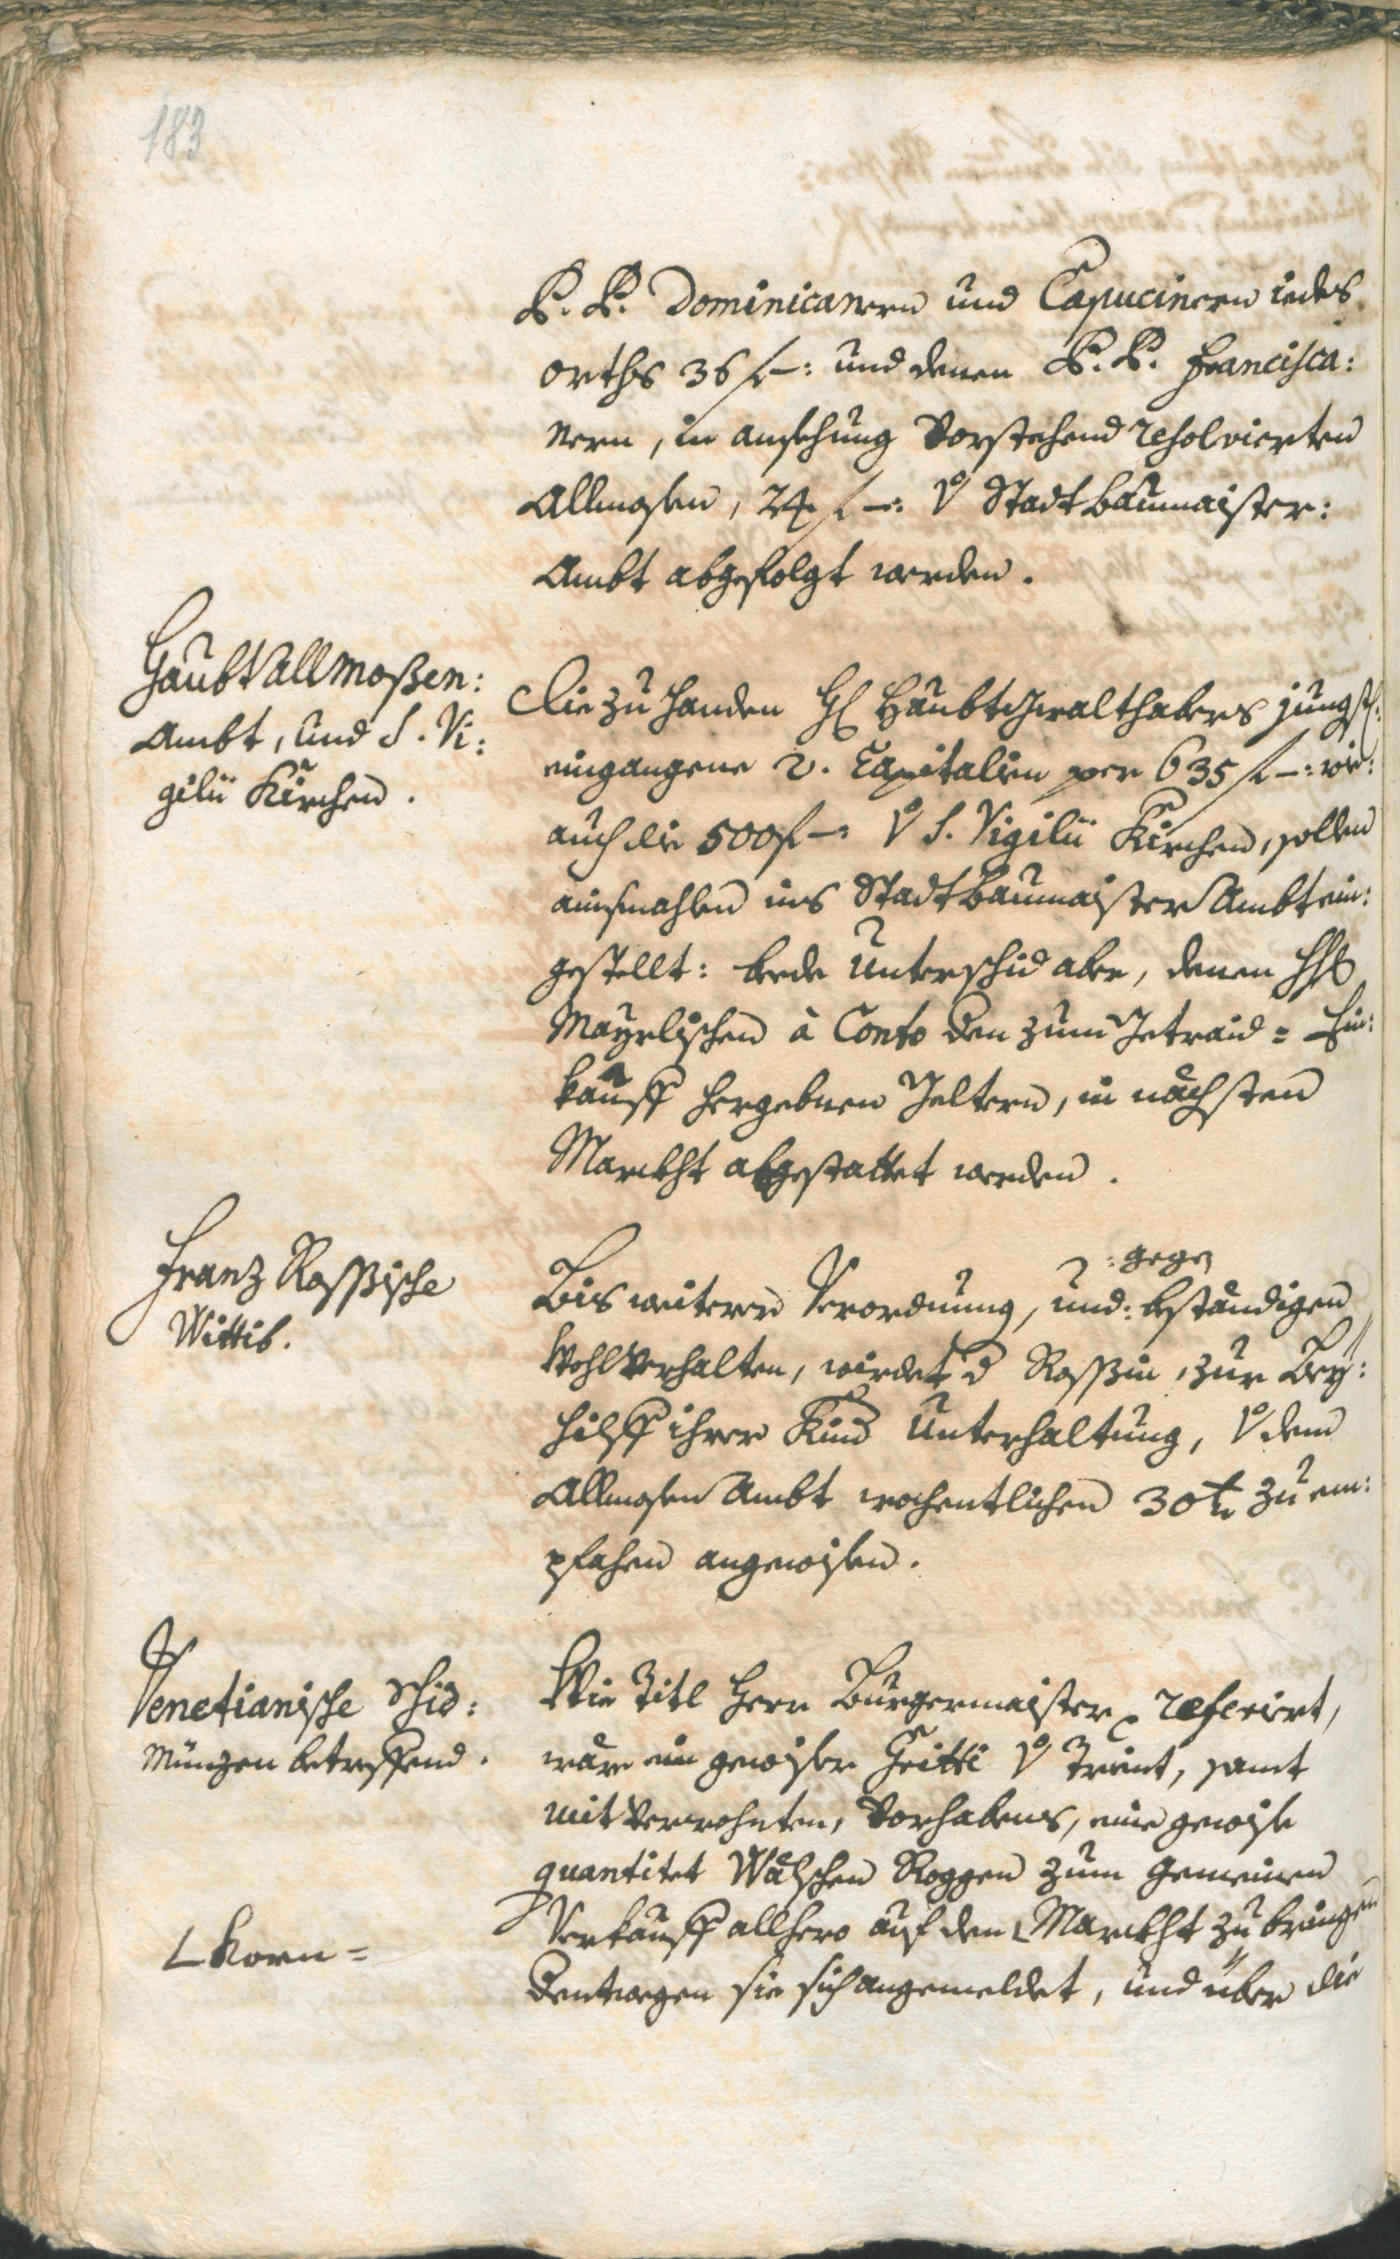 183
P. P. Dominicanern und Capucinern iedes
orths 36 f –: und denen P. P. Francisca:
nern, in ansehung vorstehend resolvierten
Allmosen, 24 f –: v Stadtbaumaister:
Ambt abgefolgt werden.
HaubtAllmoßen:
Ambt, und S. Vi:
gilii Kirchen.
Die zu handen H Haubtgwalthabers jungst:
eingangene 2. Capitalien per 635 f –: wie:
auch die 500 f –: v S. Vigilii Kirchen, sollen
ainsmahlen ins Stadtbaumaister Ambt ein:
gestellt: beede unterschid aber, denen HH
Mayrlischen à Conto den zum Getraid = Ein:
kauff hergebnen Geltern, in nächsten
Marckht abgestattet werden.
Franz Rossische
Wittib.
:gegen
Bis weitere Verordnung, und: beständigen
Wohlverhalten, wirdet d Rossin, zur Bey:
hilff ihrer Kind Unterhaltung, v dem
Allmosen Ambt wochentlichen 30 kr zu em:
pfahen angewisen.
Venetianische Schid:
Münzen betreffend.
Wie Titl Herr Burgermaister referirt,
wäre ein gewisser Gritti v Trient, samt
mit Verwohnten, Vorhabens, eine gewise
quantitet Wälschen Roggen zum gemeinen
Verkauff allhero auf den Marckht zu bringen
L Korn =
Dentwegen sie sich angemeldet, und über die